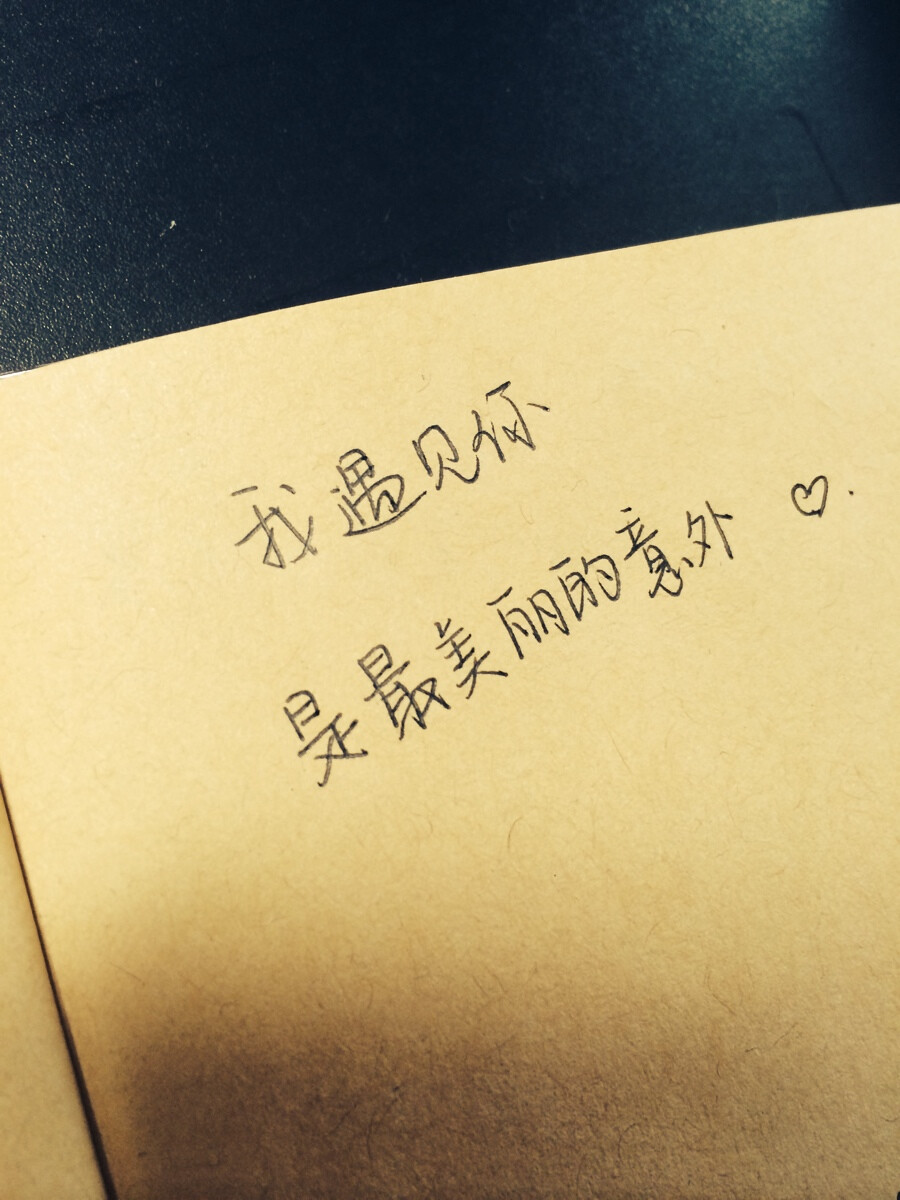 我遇见你
是最美丽的意外 ♡.